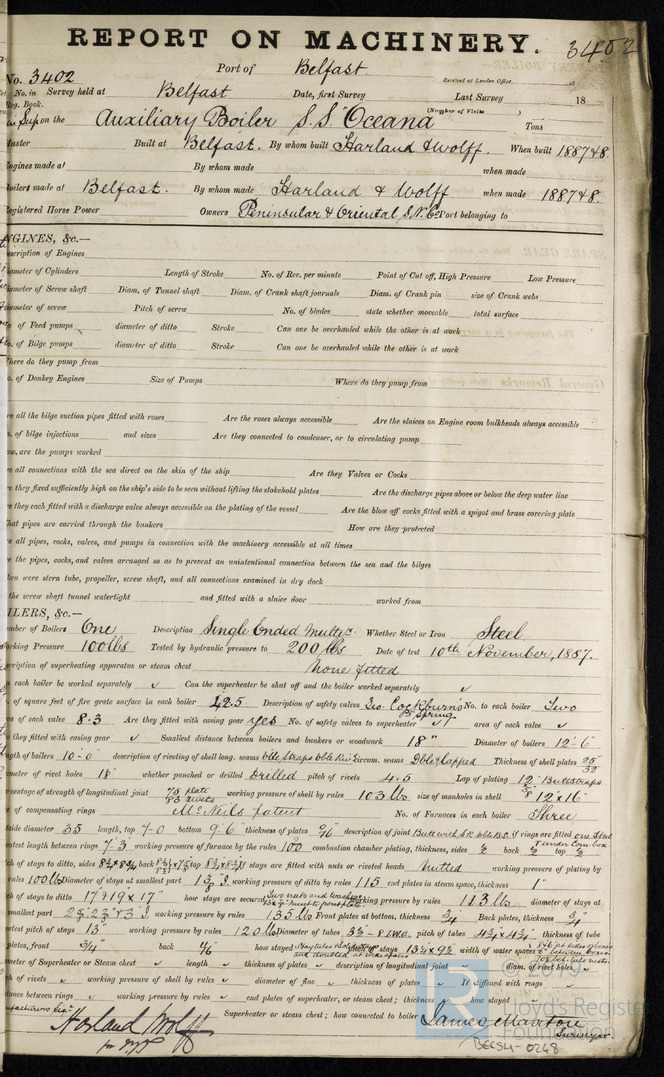 REPORT ON MACHINERY. 3402
No. 3402 Port of Belfast Received at London Office 18
No. in Survey held at Belfast Date, first Survey Last Survey 18
Reg. Book. (Number of Visits )
on the Auxiliary Boiler S.S. "Oceana" Tons
Master Built at Belfast. By whom built Harland & Wolff. When built 1887&8.
Engines made at By whom made when made
Boilers made at Belfast. By whom made Harland & Wolff when made 1887&8.
Registered Horse Power Owners Peninsular & Oriental S.N. Co Port belonging to
ENGINES, &c.—
Description of Engines
Diameter of Cylinders Length of Stroke No. of Rev. per minute Point of Cut off, High Pressure Low Pressure
Diameter of Screw shaft Diam. of Tunnel shaft Diam. of Crank shaft journals Diam. of Crank pin size of Crank webs
Diameter of screw Pitch of screw No. of blades state whether moveable total surface
No. of Feed pumps diameter of ditto Stroke Can one be overhauled while the other is at work
No. of Bilge pumps diameter of ditto Stroke Can one be overhauled while the other is at work
Where do they pump from
No. of Donkey Engines Size of Pumps Where do they pump from
Are all the bilge suction pipes fitted with roses Are the roses always accessible Are the sluices on Engine room bulkheads always accessible
No. of bilge injections and sizes Are they connected to condenser, or to circulating pump
How are the pumps worked
Are all connections with the sea direct on the skin of the ship Are they Valves or Cocks
Are they fixed sufficiently high on the ship's side to be seen without lifting the stokehold plates Are the discharge pipes above or below the deep water line
Are they each fitted with a discharge valve always accessible on the plating of the vessel Are the blow off cocks fitted with a spigot and brass covering plate
What pipes are carried through the bunkers How are they protected
Are all pipes, cocks, valves, and pumps in connection with the machinery accessible at all times
Are the pipes, cocks, and valves arranged so as to prevent an unintentional connection between the sea and the bilges
When were stern tube, propeller, screw shaft, and all connections examined in dry dock
Is the screw shaft tunnel watertight and fitted with a sluice door worked from
BOILERS, &c.—
Number of Boilers One Description Single Ended Multr. Whether Steel or Iron Steel
Working Pressure 100 lbs Tested by hydraulic pressure to 200 lbs Date of test 10th November, 1887.
Description of superheating apparatus or steam chest None fitted
Can each boiler be worked separately ✓ Can the superheater be shut off and the boiler worked separately ✓
No. of square feet of fire grate surface in each boiler 42.5 Description of safety valves Geo Cockburn's Spring. No. to each boiler Two
Area of each valve 8.3 Are they fitted with easing gear yes No. of safety valves to superheater ✓ area of each valve ✓
Are they fitted with easing gear ✓ Smallest distance between boilers and bunkers or woodwork 18" Diameter of boilers 12'-6"
Length of boilers 10-0" description of riveting of shell long. seams Dble Straps Dble Riv. circum. seams Dble Lapped Thickness of shell plates 25/32
Diameter of rivet holes whether punched or drilled Drilled pitch of rivets 4.5 Lap of plating 12" Buttstraps
Percentage of strength of longitudinal joint 75 plate 83 rivets working pressure of shell by rules 103 lbs size of manholes in shell 12 x 16"
Size of compensating rings McNeils patent No. of Furnaces in each boiler Three
Outside diameter 35 length, top 7-0 bottom 9-6" thickness of plates 9/16 description of joint if rings are fitted
Greatest length between rings 7-3 working pressure of furnace by the rules 100 combustion chamber plating, thickness, sides 1/2 back 1/2 top 1/2
Pitch of stays to ditto, sides back top If stays are fitted with nuts or riveted heads Nutted working pressure of plating by
rules 100 lbs Diameter of stays at smallest part working pressure of ditto by rules 115 end plates in steam space, thickness 1"
Pitch of stays to ditto 17" & 19 x 17" how stays are secured working pressure by rules 113 lbs diameter of stays at
smallest part working pressure by rules 135 lbs Front plates at bottom, thickness 3/4 Back plates, thickness 3/4"
Greatest pitch of stays 13" working pressure by rules 120 lbs Diameter of tubes pitch of tubes thickness of tube
plates, front 3/4" back 11/16 how stayed pitch of stays 13 1/2 x 9 1/2 width of water spaces
Diameter of Superheater or Steam chest ✓ length ✓ thickness of plates ✓ description of longitudinal joint ✓ diam. of rivet holes ✓
Pitch of rivets ✓ working pressure of shell by rules ✓ diameter of flue ✓ thickness of plates ✓ If stiffened with rings ✓
Distance between rings ✓ working pressure by rules ✓ end plates of superheater, or steam chest; thickness ✓ how stayed ✓
Superheater or steam chest; how connected to boiler ✓
Harland Wolff James Marston
Surveyor.
BECS4-0248
© 2019
Lloyd's Register
Foundation